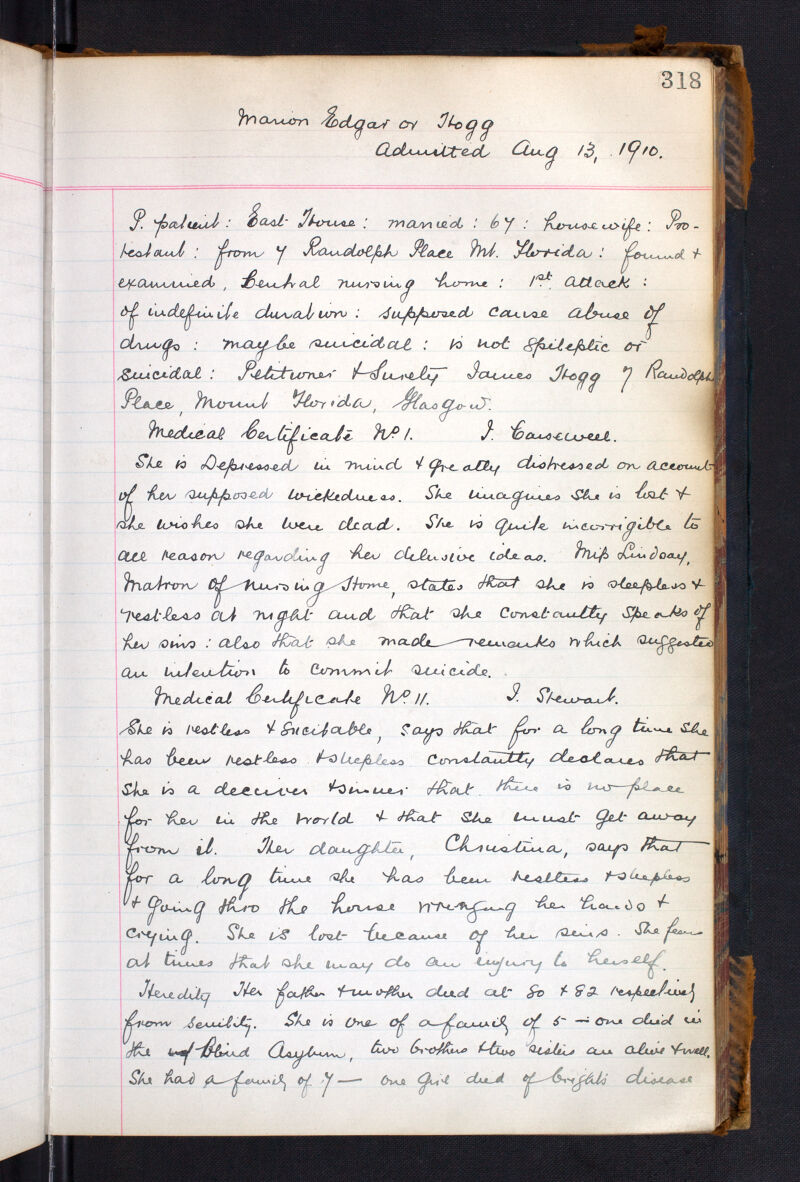 318
Marion Edgar or Hogg
Admitted Aug 13, 1910.
P. patient : East House : married : 67 : housewife : Pro-
testant : from 7 Randolph Place Mt. Florida : found +
examined, Central nursing home : 1st. attack :
of indefinite duration : supposed cause abuse of
drugs : may be suicidal : is not Epileptic or
suicidal : Petitioner & Surety James Hogg 7 Randolph
Place, Mount Florida, Glasgow.
Medical Certificate No 1. J. Carswell.
She is Depressed in mind & greatly distressed on account
of her supposed wickedness. She imagines She is lost &
she wishes she were dead. She is quite incorrigible to
all reason regarding her delusive ideas. Miss Lindsay,
Matron of Nursing Home, states that she is sleepless &
restless at night and that she constantly speaks of
her sins : also that she made remarks which suggested
an intention to commit suicide.
Medical Certificate No 11. J. Stewart.
She is restless & Excitable, says that for a long time she
has been restless & sleepless constantly declares that
She is a deceiver & sinner that there is no place
for her in the world & that She must get away
from it. Her daughter, Christina, says that
for a long time she has been restless & sleepless
& going thro the house wringing her hands &
crying. She is lost because of her sins. She fears
at times that she may do an injury to herself.
Heredity Her father & mother died at 80 & 82 respectively
from Senility. She is one of a family of 5 - one died in
the Blind Asylum, two brothers & two sisters are alive & well.
She had a family of 7 — one girl died of bright's disease